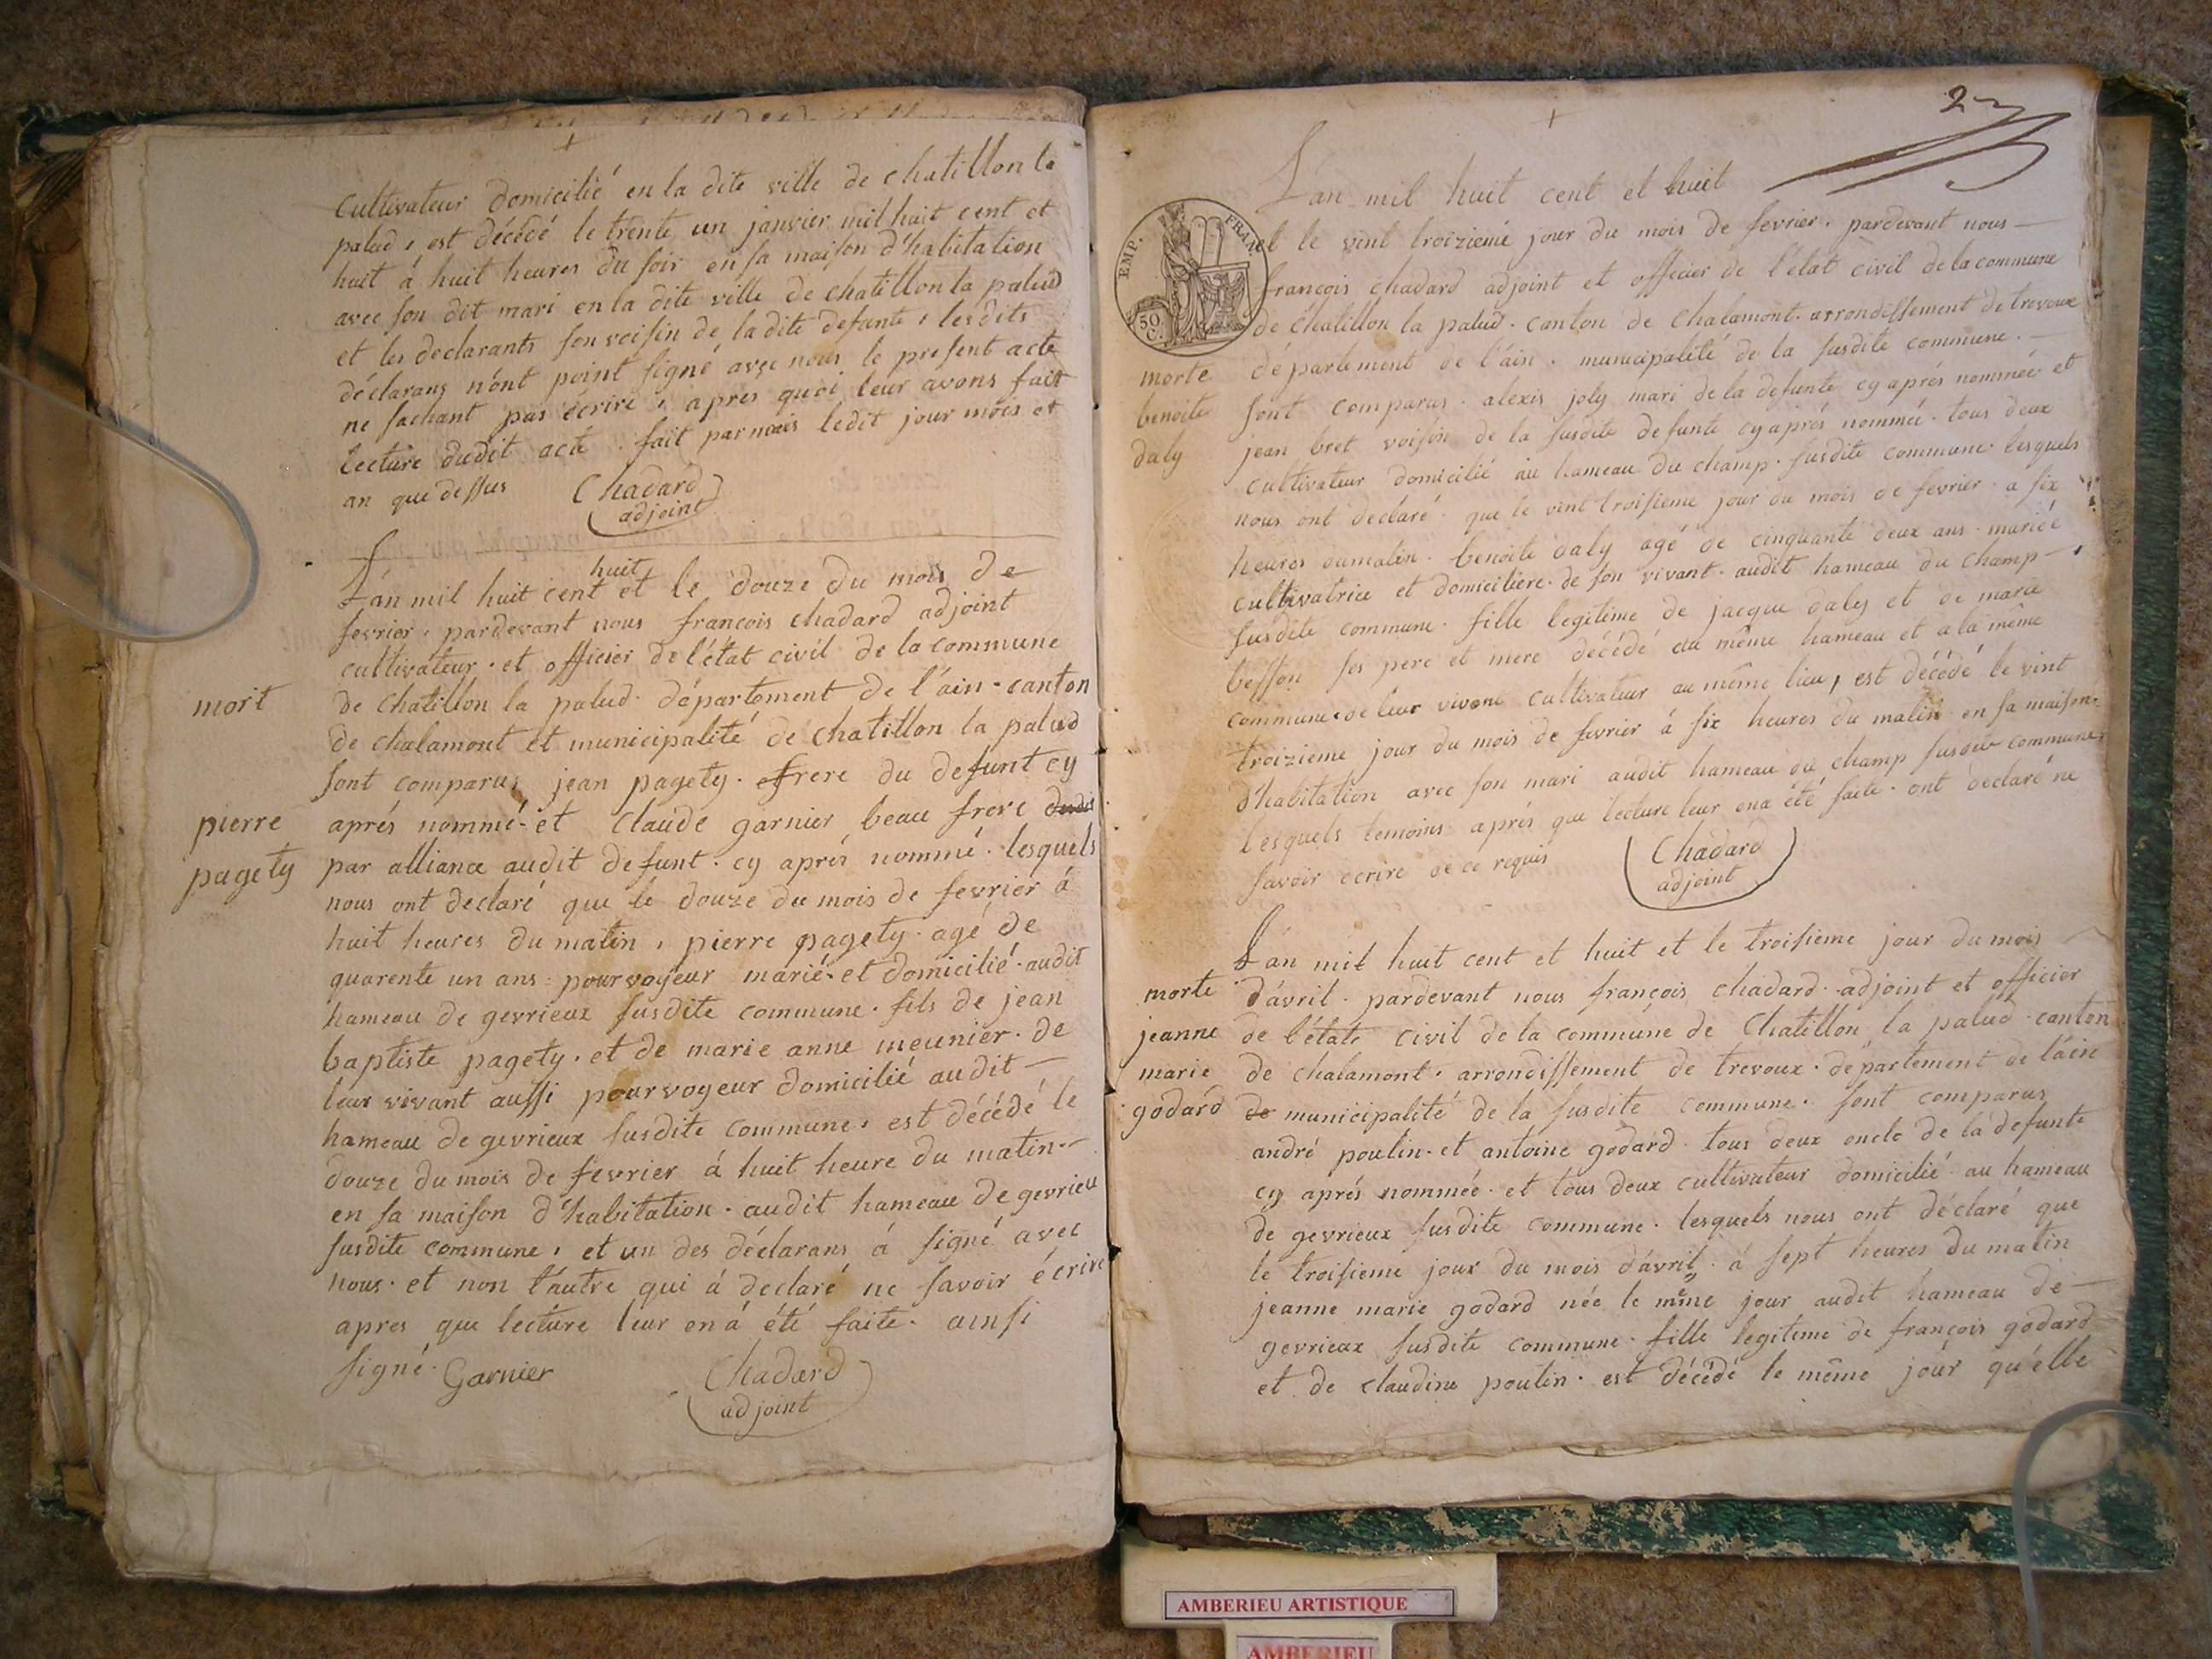 cultivateur domicilié en la dite ville de chatillon la
palud, est décédé le trente un janvier mil huit cent et
huit á huit heures du soir en sa maison d'habitation
avec son dit mari en la dite ville de chatillon la palud
et les declarants son voisin de la dite defunte, lesdits
déclarans n'ont point signé avec nous le present acte
ne sachant pas écrire, apres quoi leur avons fait
lecture dudit acte. fait par nous ledit jour mois et
an que dessus
Chadard
adjoint
L'án mil huit cent et huit le douze du mois de
fevrier, pardevant nous francois chadard adjoint
cultivateur. et officier de l'état civil de la commune
mort
de chatillon la palud. département de l'áin. canton
de chalamont et municipalité de chatillon la palud
sont comparus jean pagety. frere du defunt cy
pierre
aprés nommé. et Claude garnier beau frere dudit
pagety
par alliance audit defunt. cy aprés nommé. lesquels
nous ont declaré que le douze du mois de fevrier á
huit heures du matin, pierre pagety. agé de
quarente un ans. pourvoyeur marié. et domicilié. audit
hameau de gevrieux susdite commune. fils de jean
baptiste pagety. et de marie anne meunier. de
leur vivant aussi pourvoyeur domicilié audit
hameau de gevrieux susdite commune, est décédé le
douze du mois de fevrier á huit heure du matin
en sa maison d'habitation. audit hameau de gevrieu
susdite commune, et un des déclarans á signé avec
nous. et non l'áutre qui á declaré ne savoir écrire
apres que lecture leur en á été faite. ainsi
signé. Garnier
Chadard
adjoint
2
L'an mil huit cent et huit
EMP. FRANC.
50 C.
et le vint troizieme jour du mois de fevrier. pardevant nous
francois chadard adjoint et officier de l'état civil de la commune
de chatillon la palud. canton de chalamont. arrondissement de trevoux
morte
département de l'áin. municipalité de la susdite commune.
benoite
sont comparus. alexis joly mari de la defunte cy aprés nommée et
daly
jean bret voisin de la susdite defunte cy aprés nommée. tous deux
cultivateur domicilié au hameau du champ. susdite commune. lesquels
nous ont declaré. que le vint troisieme jour du mois de fevrier. a six
heures du matin. benoite daly agé de cinquante deux ans. mariée
cultivatrice et domiciliere. de son vivant. audit hameau du champ
susdite commune. fille legitime de jacque daly et de marie
besson ses pere et mere décédé au même hameau et a la même
commune. de leur vivant cultivateur au même lieu, est décédé le vint
troizieme jour du mois de fevrier á six heures du matin en sa maison.
d'habitation avec son mari audit hameau du champ susdite commune.
lesquels temoins aprés que lecture leur en a été faite. ont declaré ne
savoir ecrire de ce requis
Chadard
adjoint
L'án mil huit cent et huit et le troisieme jour du mois
morte
d'ávril. pardevant nous françois chadard. adjoint et officier
jeanne
de l'état civil de la commune de Chatillon la palud. canton
marie
de chalamont. arrondissement de trevoux. département de l'áin
godard
de municipalité de la susdite commune. sont comparus
andré poulin. et antoine godard. tous deux oncle de la defunte
cy aprés nommée. et tous deux cultivateur domicilié au hameau
de gevrieux susdite commune. lesquels nous ont déclaré que
le troisieme jour du mois d'ávril. á sept heures du matin
jeanne marie godard née le même jour audit hameau de
gevrieux susdite commune. fille legitime de françois godard
et de claudine poulin. est décédé le même jour qu'elle
AMBERIEU ARTISTIQUE
AMBERIEU